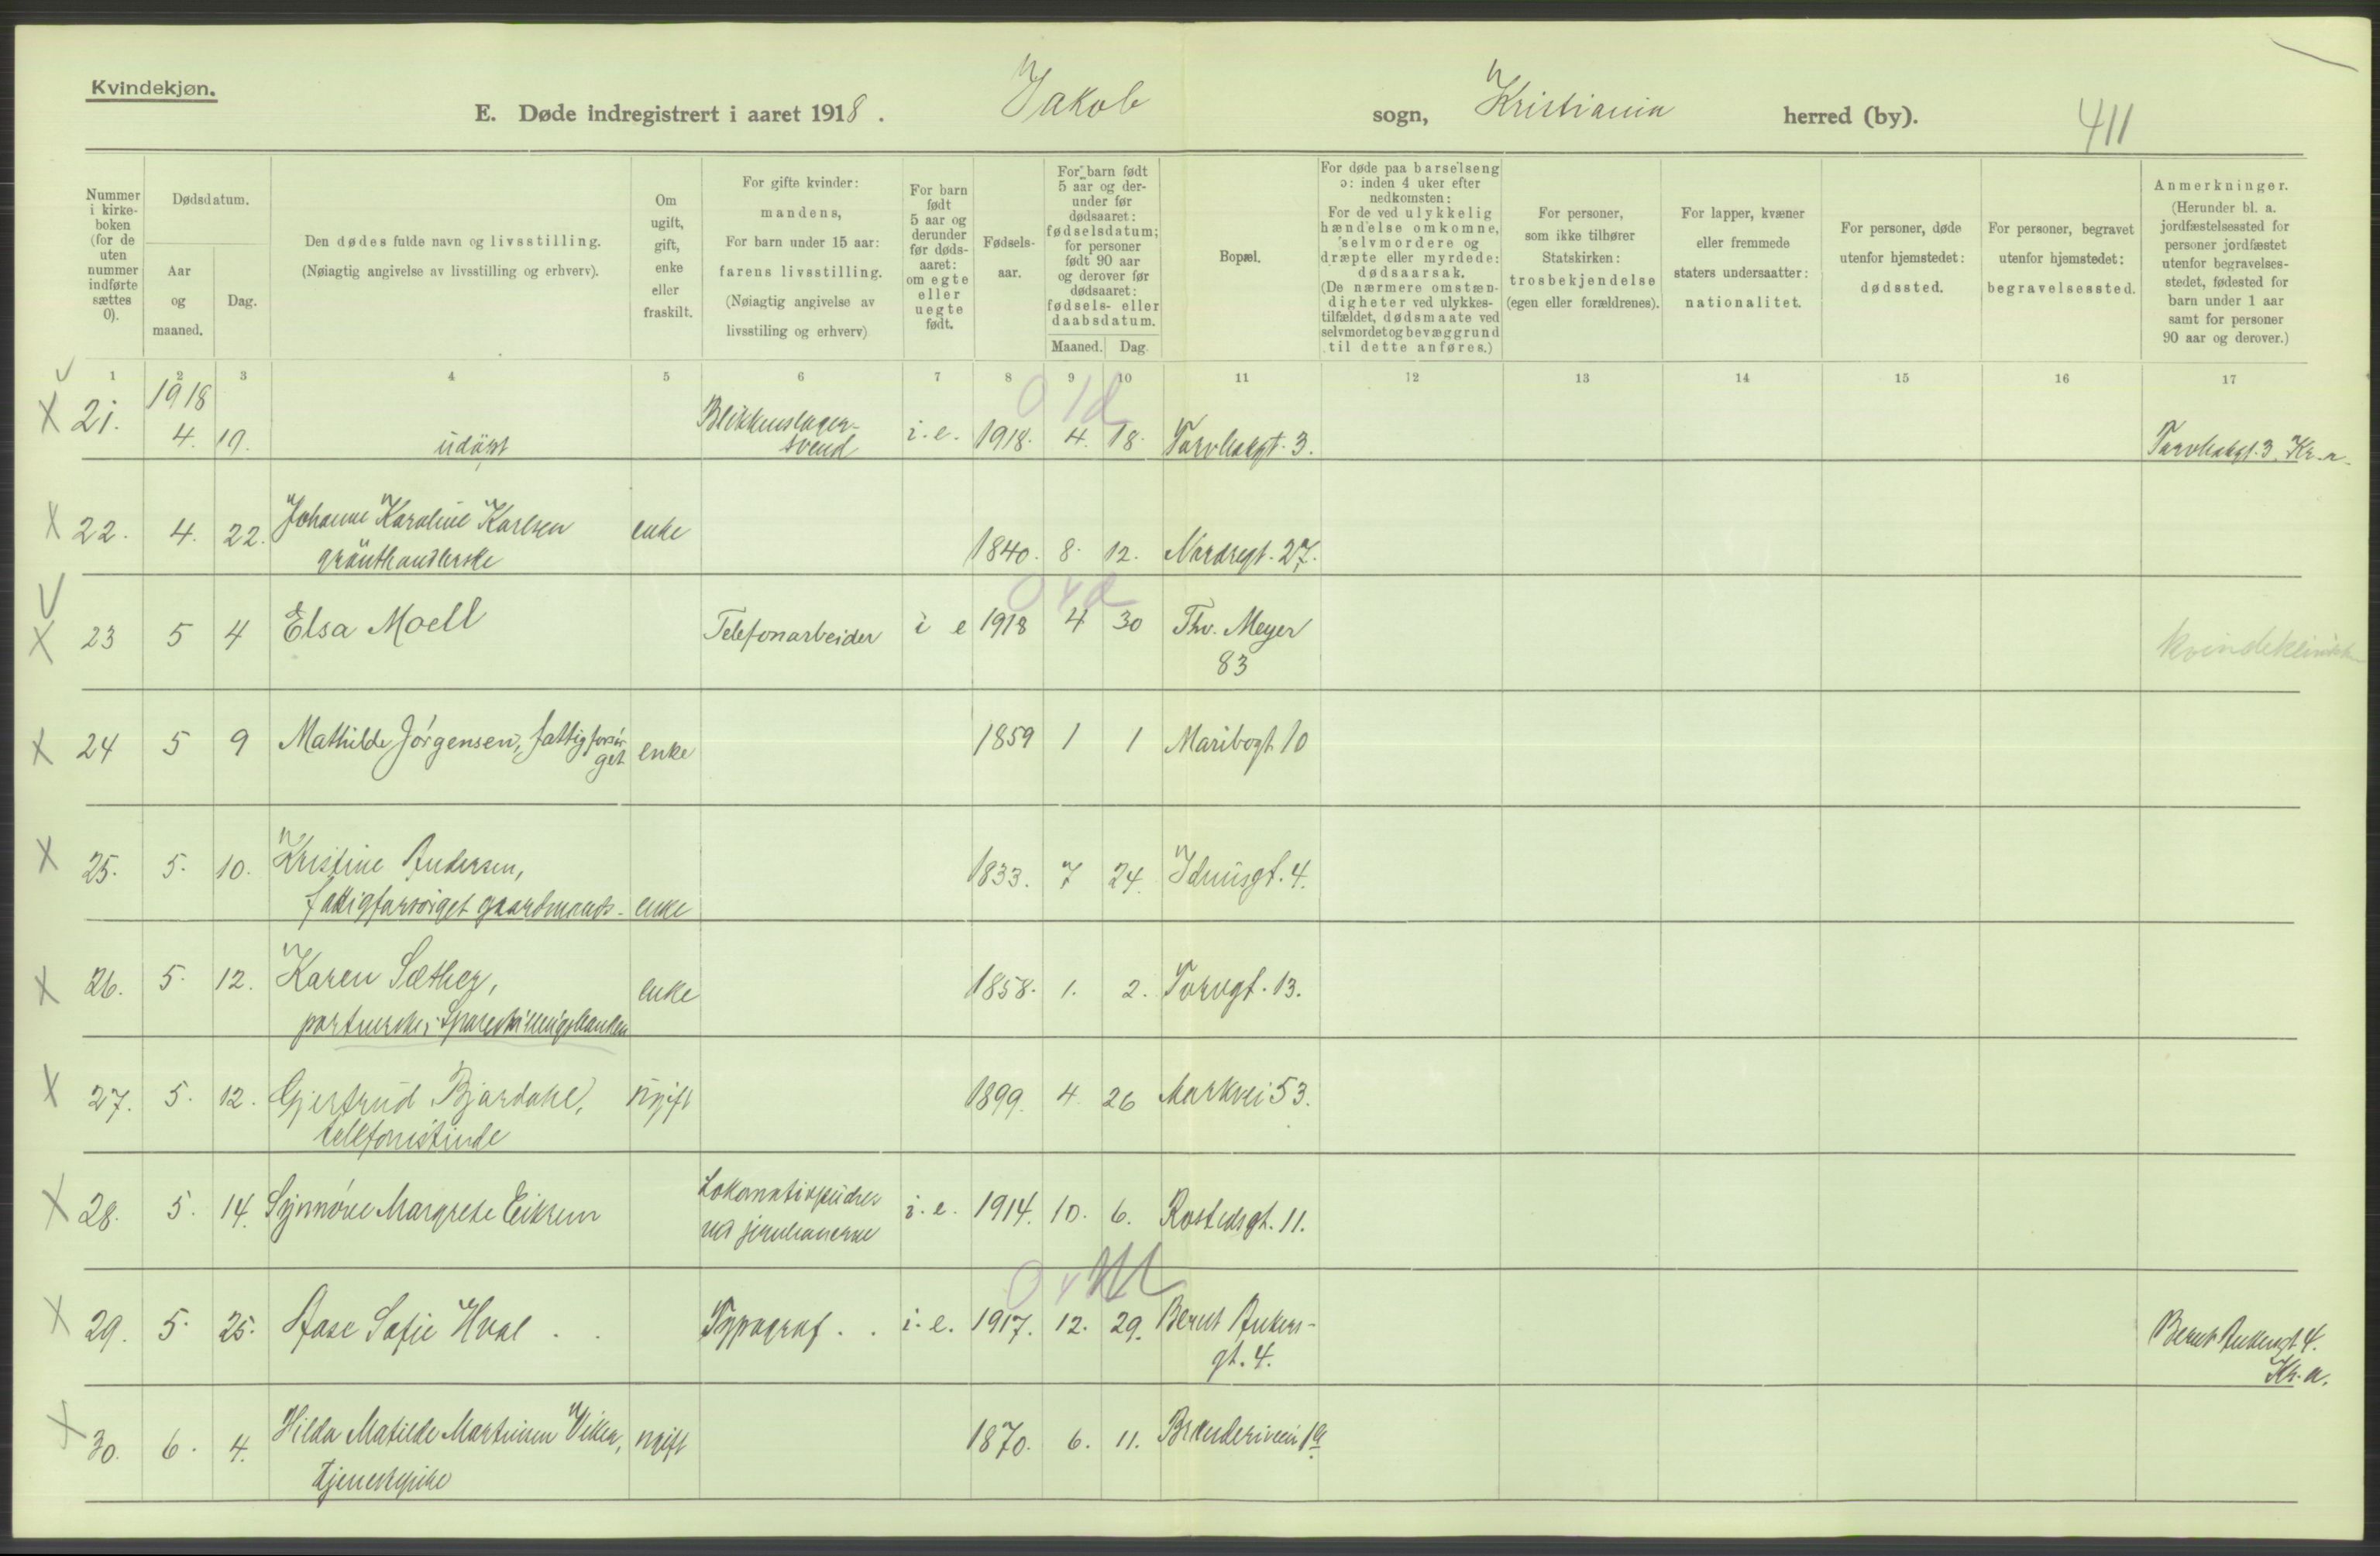 Kvindekjøn.
E. Døde indregistrert i aaret 1918. Jakob sogn, Kristiania herred (by). 411
Nummer i kirke-boken (for de uten nummer indførte sættes 0).
Dødsdatum.
Aar og maaned.
Dag.
Den dødes fulde navn og livsstilling.
(Nøiagtig angivelse av livsstilling og erhverv).
Om ugift, gift, enke eller fraskilt.
For gifte kvinder: mandens,
For barn under 15 aar: farens livsstilling.
(Nøiagtig angivelse av livsstiling og erhverv)
For barn født 5 aar og derunder før døds-aaret: om egte eller uegte født.
Fødsels-aar.
For barn født 5 aar og der-under før dødsaaret: fødselsdatum; for personer født 90 aar og derover før dødsaaret: fødsels- eller daabsdatum.
Maaned. Dag.
Bopæl.
For døde paa barselseng ɔ: inden 4 uker efter nedkomsten:
For de ved ulykkelig hændelse omkomne, selvmordere og dræpte eller myrdede: dødsaarsak.
(De nærmere omstæn-digheter ved ulykkes-tilfældet, dødsmaate ved selvmordet og bevæggrund til dette anføres.)
For personer, som ikke tilhører Statskirken: trosbekjendelse (egen eller forældrenes).
For lapper, kvæner eller fremmede staters undersaatter: nationalitet.
For personer, døde utenfor hjemstedet: dødssted.
For personer, begravet utenfor hjemstedet: begravelsessted.
Anmerkninger.
(Herunder bl. a. jordfæstelsessted for personer jordfæstet utenfor begravelses-stedet, fødested for barn under 1 aar samt for personer 90 aar og derover.)
1 2 3 4 5 6 7 8 9 10 11 12 13 14 15 16 17
1918
0 1d
X 21. 4. 19. udöpt Blikkenslager-svend i.e. 1918. 4. 18. 3. 3. Kr.a.
X 22. 4. 22. Johanne Karoline Karlsen enke 1840. 8. 12. Nordregt. 27.
grönthandlerske
0 4d
X 23 5 4 Elsa Moell Telefonarbeider i e 1918 4 30 Thv. Meyer
83
kvindekliniken
X 24 5 9 Mathilde Jörgensen, fattigforsör-get enke 1859 1 1 Maribogt 10
X 25. 5. 10. Kristine Andersen, 1833. 7 24. Idunsgt. 4.
fattigforsörget gaardmands- enke
X 26. 5. 12. Karen Sæther, enke 1858. 1. 2. Torvgt. 13.
portnerske, Spareskillingsbanken
X 27. 5. 12. Gjertrud Bjordahl, ugift 1899. 4. 26 Markvei 53.
telefonistinde
X 28. 5. 14. Synnöve Margrete Eikrem Lokomotivpudser i.e. 1914. 10. 6. Rostedsgt. 11.
ved jernbanerne
0 4
X 29. 5. 25. Aase Sofie Hval Typograf i.e. 1917. 12. 29. Bernt Ankers-
gt. 4.
Bernt Ankersgt 4.
Kr.a.
X 30. 6. 4. Hilda Matilde Martinsen Viken, ugift 1870. 6. 11. Brenderiveien 1a
tjenestepike